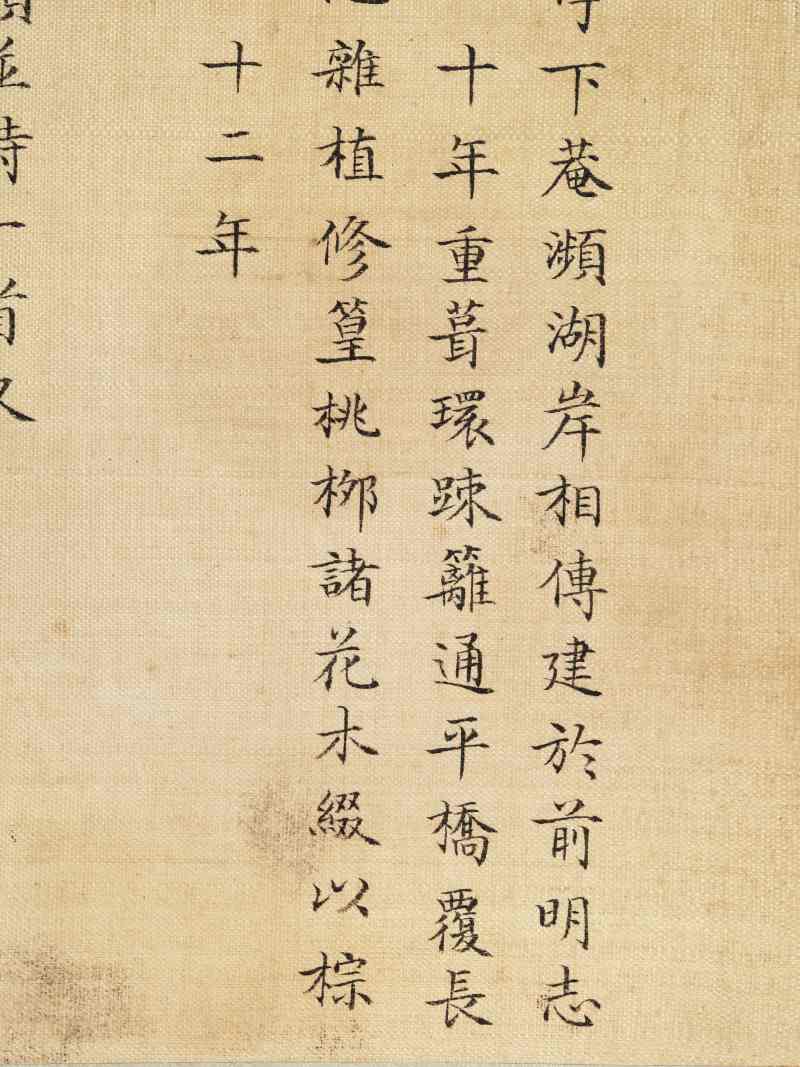 下菴瀕湖岸相傳建於前明志
十年重葺環踈籬通平橋覆長
雜植修篁桃栁諸花木綴以棕
十二年
並詩一首又